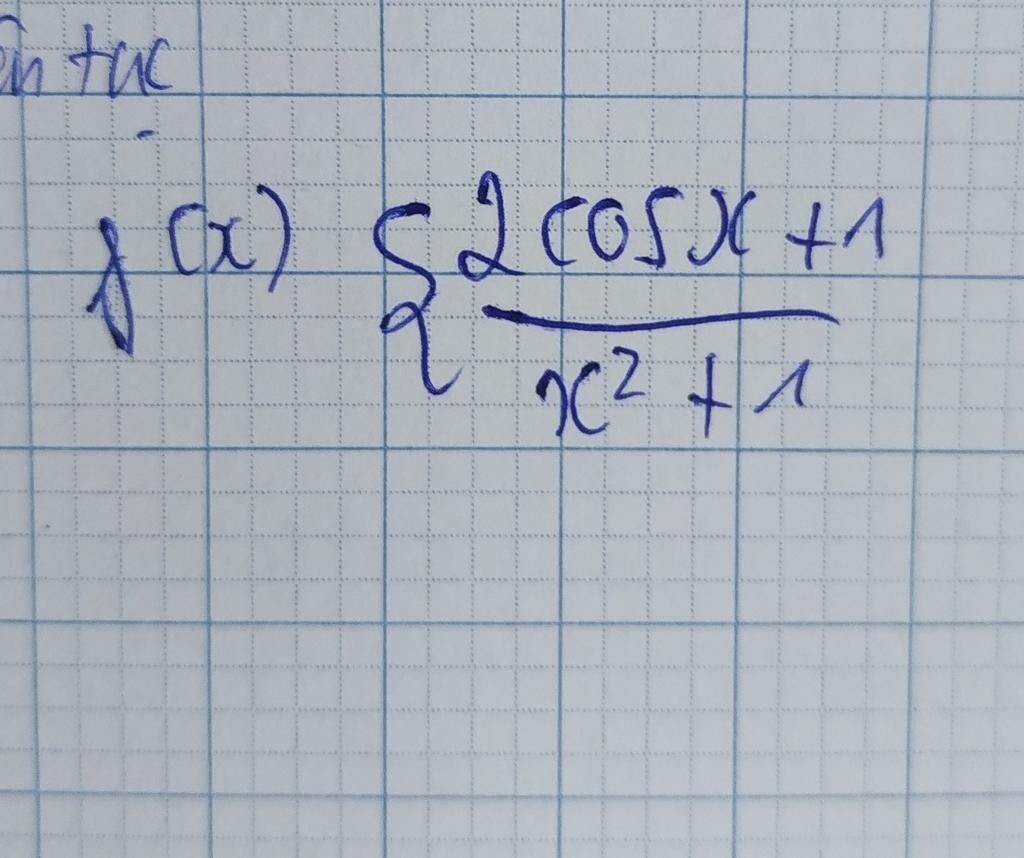 tục
f(x) { 2cosx + 1
x² + 1